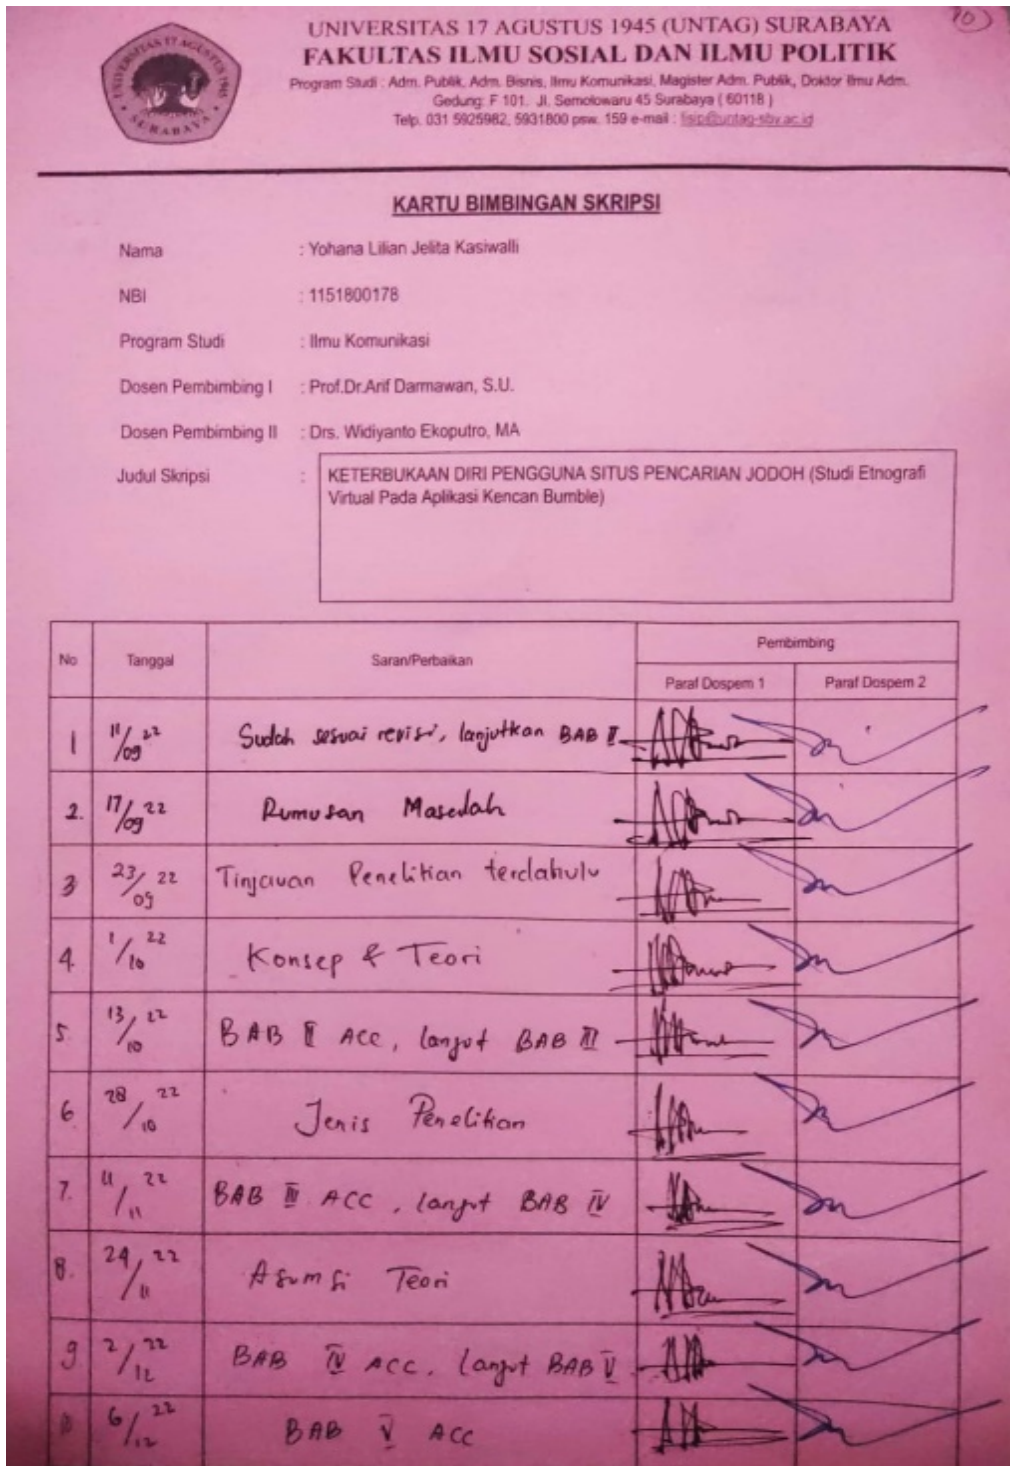 10
UNIVERSITAS 17 AGUSTUS 1945 (UNTAG) SURABAYA
FAKULTAS ILMU SOSIAL DAN ILMU POLITIK
Program Studi : Adm. Publik, Adm. Bisnis, Ilmu Komunikasi, Magister Adm. Publik, Doktor Ilmu Adm.
Gedung: F 101. Jl. Semolowaru 45 Surabaya ( 60118 )
Telp. 031 5925982, 5931800 psw. 159 e-mail : fisip@untag-sby.ac.id
UNIVERSITAS 17 AGUSTUS 1945
SURABAYA
KARTU BIMBINGAN SKRIPSI
Nama : Yohana Lilian Jelita Kasiwalli
NBI : 1151800178
Program Studi : Ilmu Komunikasi
Dosen Pembimbing I : Prof.Dr.Arif Darmawan, S.U.
Dosen Pembimbing II : Drs. Widiyanto Ekoputro, MA
Judul Skripsi : KETERBUKAAN DIRI PENGGUNA SITUS PENCARIAN JODOH (Studi Etnografi
Virtual Pada Aplikasi Kencan Bumble)
No Tanggal Saran/Perbaikan Pembimbing
Paraf Dospem 1 Paraf Dospem 2
1 11/09 22 Sudah sesuai revisi, lanjutkan BAB II
2. 17/09 22 Rumusan Masalah
3 23/09 22 Tinjauan Penelitian terdahulu
4. 1/10 22 Konsep & Teori
5. 13/10 22 BAB II ACC, lanjut BAB III
6 28/10 22 Jenis Penelitian
7. 11/11 22 BAB III ACC, lanjut BAB IV
8. 24/11 22 Asumsi Teori
9 2/12 22 BAB IV ACC, lanjut BAB V
6/12 22 BAB V ACC